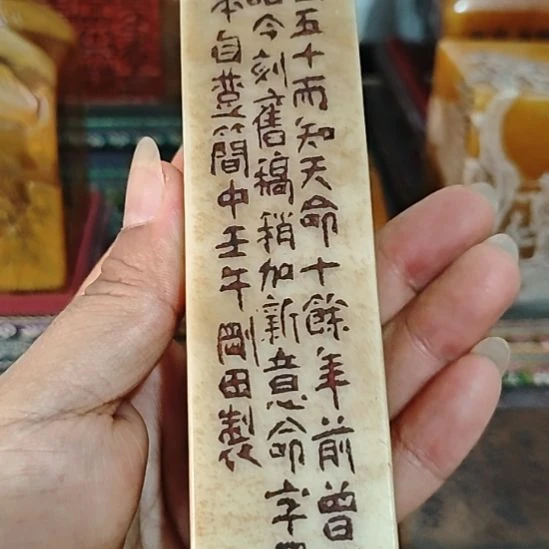 五十而知天命十餘年前曾
今刻舊稿稍加新意命字
本自薹簡中壬午剛田製